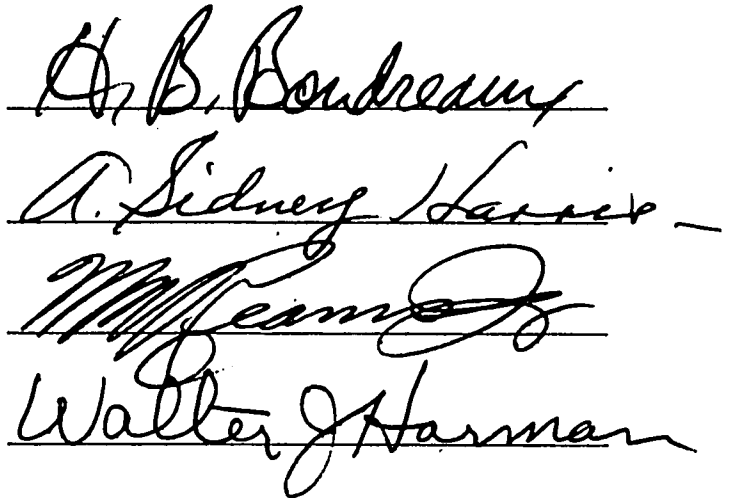 H. B. Boudreaux
A. Sidney Harris
Walter J Harman